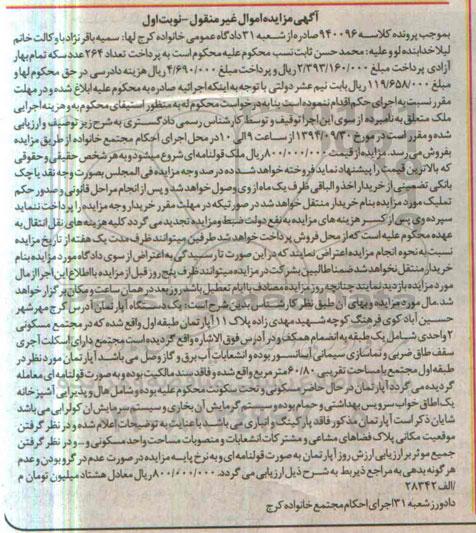 آگهی مزایده اموال غیر منقول - نوبت اول
بموجب پرونده کلاسه ۹۴۰۰۹۶ صادره از شعبه ۳۱ دادگاه عمومی خانواده کرج لها: سمیه باقر نژاد با وکالت خانم
لیلا خدابنده لو و علیه: محمد حسن ثابت نسب محکوم علیه محکوم است به پرداخت تعداد ۲۶۴ عدد سکه تمام بهار
آزادی پرداخت مبلغ ۲/۳۹۳/۱۶۰/۰۰۰ ریال و پرداخت مبلغ ۴/۶۹۰/۰۰۰ ریال هزینه دادرسی در حق محکوم لها و
مبلغ ۱۱۹/۶۵۸/۰۰۰ ریال بابت نیم عشر دولتی با توجه به اینکه اجرائیه صادره به محکوم علیه ابلاغ شده و در مهلت
مقرر نسبت به اجرای حکم اقدام ننموده است بنا به درخواست محکوم له به منظور استیفای محکوم به و هزینه اجرایی
ملک متعلق به نامبرده از سوی این اجرا توقیف و توسط کارشناس رسمی دادگستری به شرح زیر توصیف و ارزیابی
شده و مقرر است در مورخ ۱۳۹۴/۰۹/۳۰ از ساعت ۹ الی ۱۰ در محل اجرای احکام مجتمع خانواده از طریق مزایده
بفروش می رسد. مزایده از قیمت ۸۰۰/۰۰۰/۰۰۰ ریال ملک قولنامه ای شروع میشود و به هر شخص حقیقی و حقوقی
که بالاترین قیمت را پیشنهاد نماید فروخته خواهد شد ده درصد وجه مزایده فی المجلس بصورت وجه نقد یا چک
بانکی تضمینی از خریدار اخذ و الباقی ظرف یک ماه از وی وصول خواهد شد و پس از انجام مراحل قانونی و صدور حکم
تملیک مورد مزایده بنام خریدار منتقل خواهد شد در صورتیکه در مهلت مقرر خریدار وجه مزایده را پرداخت ننماید
سپرده وی پس از کسر هزینه های مزایده به نفع دولت ضبط و مزایده تجدید می گردد کلیه هزینه های نقل انتقال به
عهده محکوم علیه است که از محل فروش پرداخت خواهد شد طرفین میتوانند ظرف مدت یک هفته از تاریخ مزایده
نسبت به نحوه انجام مزایده اعتراض نمایند که در این صورت تا رسیدگی به اعتراض از سوی دادگاه مورد مزایده بنام
خریدار منتقل نخواهد شد ضمنا طالبین شرکت در مزایده میتوانند ظرف پنج روز قبل از مزایده با اطلاع این اجرا از مال
مورد مزایده بازدید نمایند چنانچه روز مزایده مصادف با ایام تعطیل باشد روز بعد در همان ساعت و مکان برگزار خواهد
شد. مال مورد مزایده و بهای آن طبق نظر کارشناس بدین شرح است: یک دستگاه آپارتمان آدرس کرج مهرشهر
حسین آباد کوی فرهنگ کوچه شهید مهدی زاده پلاک ۱۱ آپارتمان طبقه اول واقع شده که در مجتمع مسکونی
۲ واحدی شامل یک طبقه به انضمام همکف و در آدرس فوق الاشاره واقع گردیده است مجتمع دارای اسکلت آجری
سقف طاق ضربی و نماسازی سیمانی آسانسور بوده و انشعابات آب برق و گاز وصل می باشد آپارتمان مورد نظر در
طبقه اول مجتمع با مساحت تقریبی ۶۰/۸۰ متر مربع واقع شده و فاقد سند مالکیت بوده و به صورت قولنامه ای معامله
گردیده می گردد آپارتمان در حال حاضر مسکونی و تحت سکونت محکوم علیه بوده و شامل هال و پذیرایی آشپزخانه
یک اطاق خواب سرویس بهداشتی و حمام بوده و سیستم گرمایش آن بخاری و سیستم سرمایش آن کولر آبی می باشد
شایان ذکر است آپارتمان مذکور فاقد پارکینگ و انباری می باشد با عنایت به توضیحات اعلام شده و در نظر گرفتن
موقعیت مکانی پلاک فضاهای مشاعی و مشترکات انشعابات و منصوبات مساحت واحد مسکونی و... و در نظر گرفتن
جمیع موثر بر ارزیابی ارزش روز آپارتمان به صورت قولنامه ای و به نرخ پایه مزایده در صورت عدم در گرو بودن و عدم
هر گونه بدهی به مراجع ذیربط به شرح ذیل ارزیابی می گردد. ۸۰۰/۰۰۰/۰۰۰ ریال معادل هشتاد میلیون تومان م
/الف ۲۸۳۴۲
دادورز شعبه ۳۱ اجرای احکام مجتمع خانواده کرج